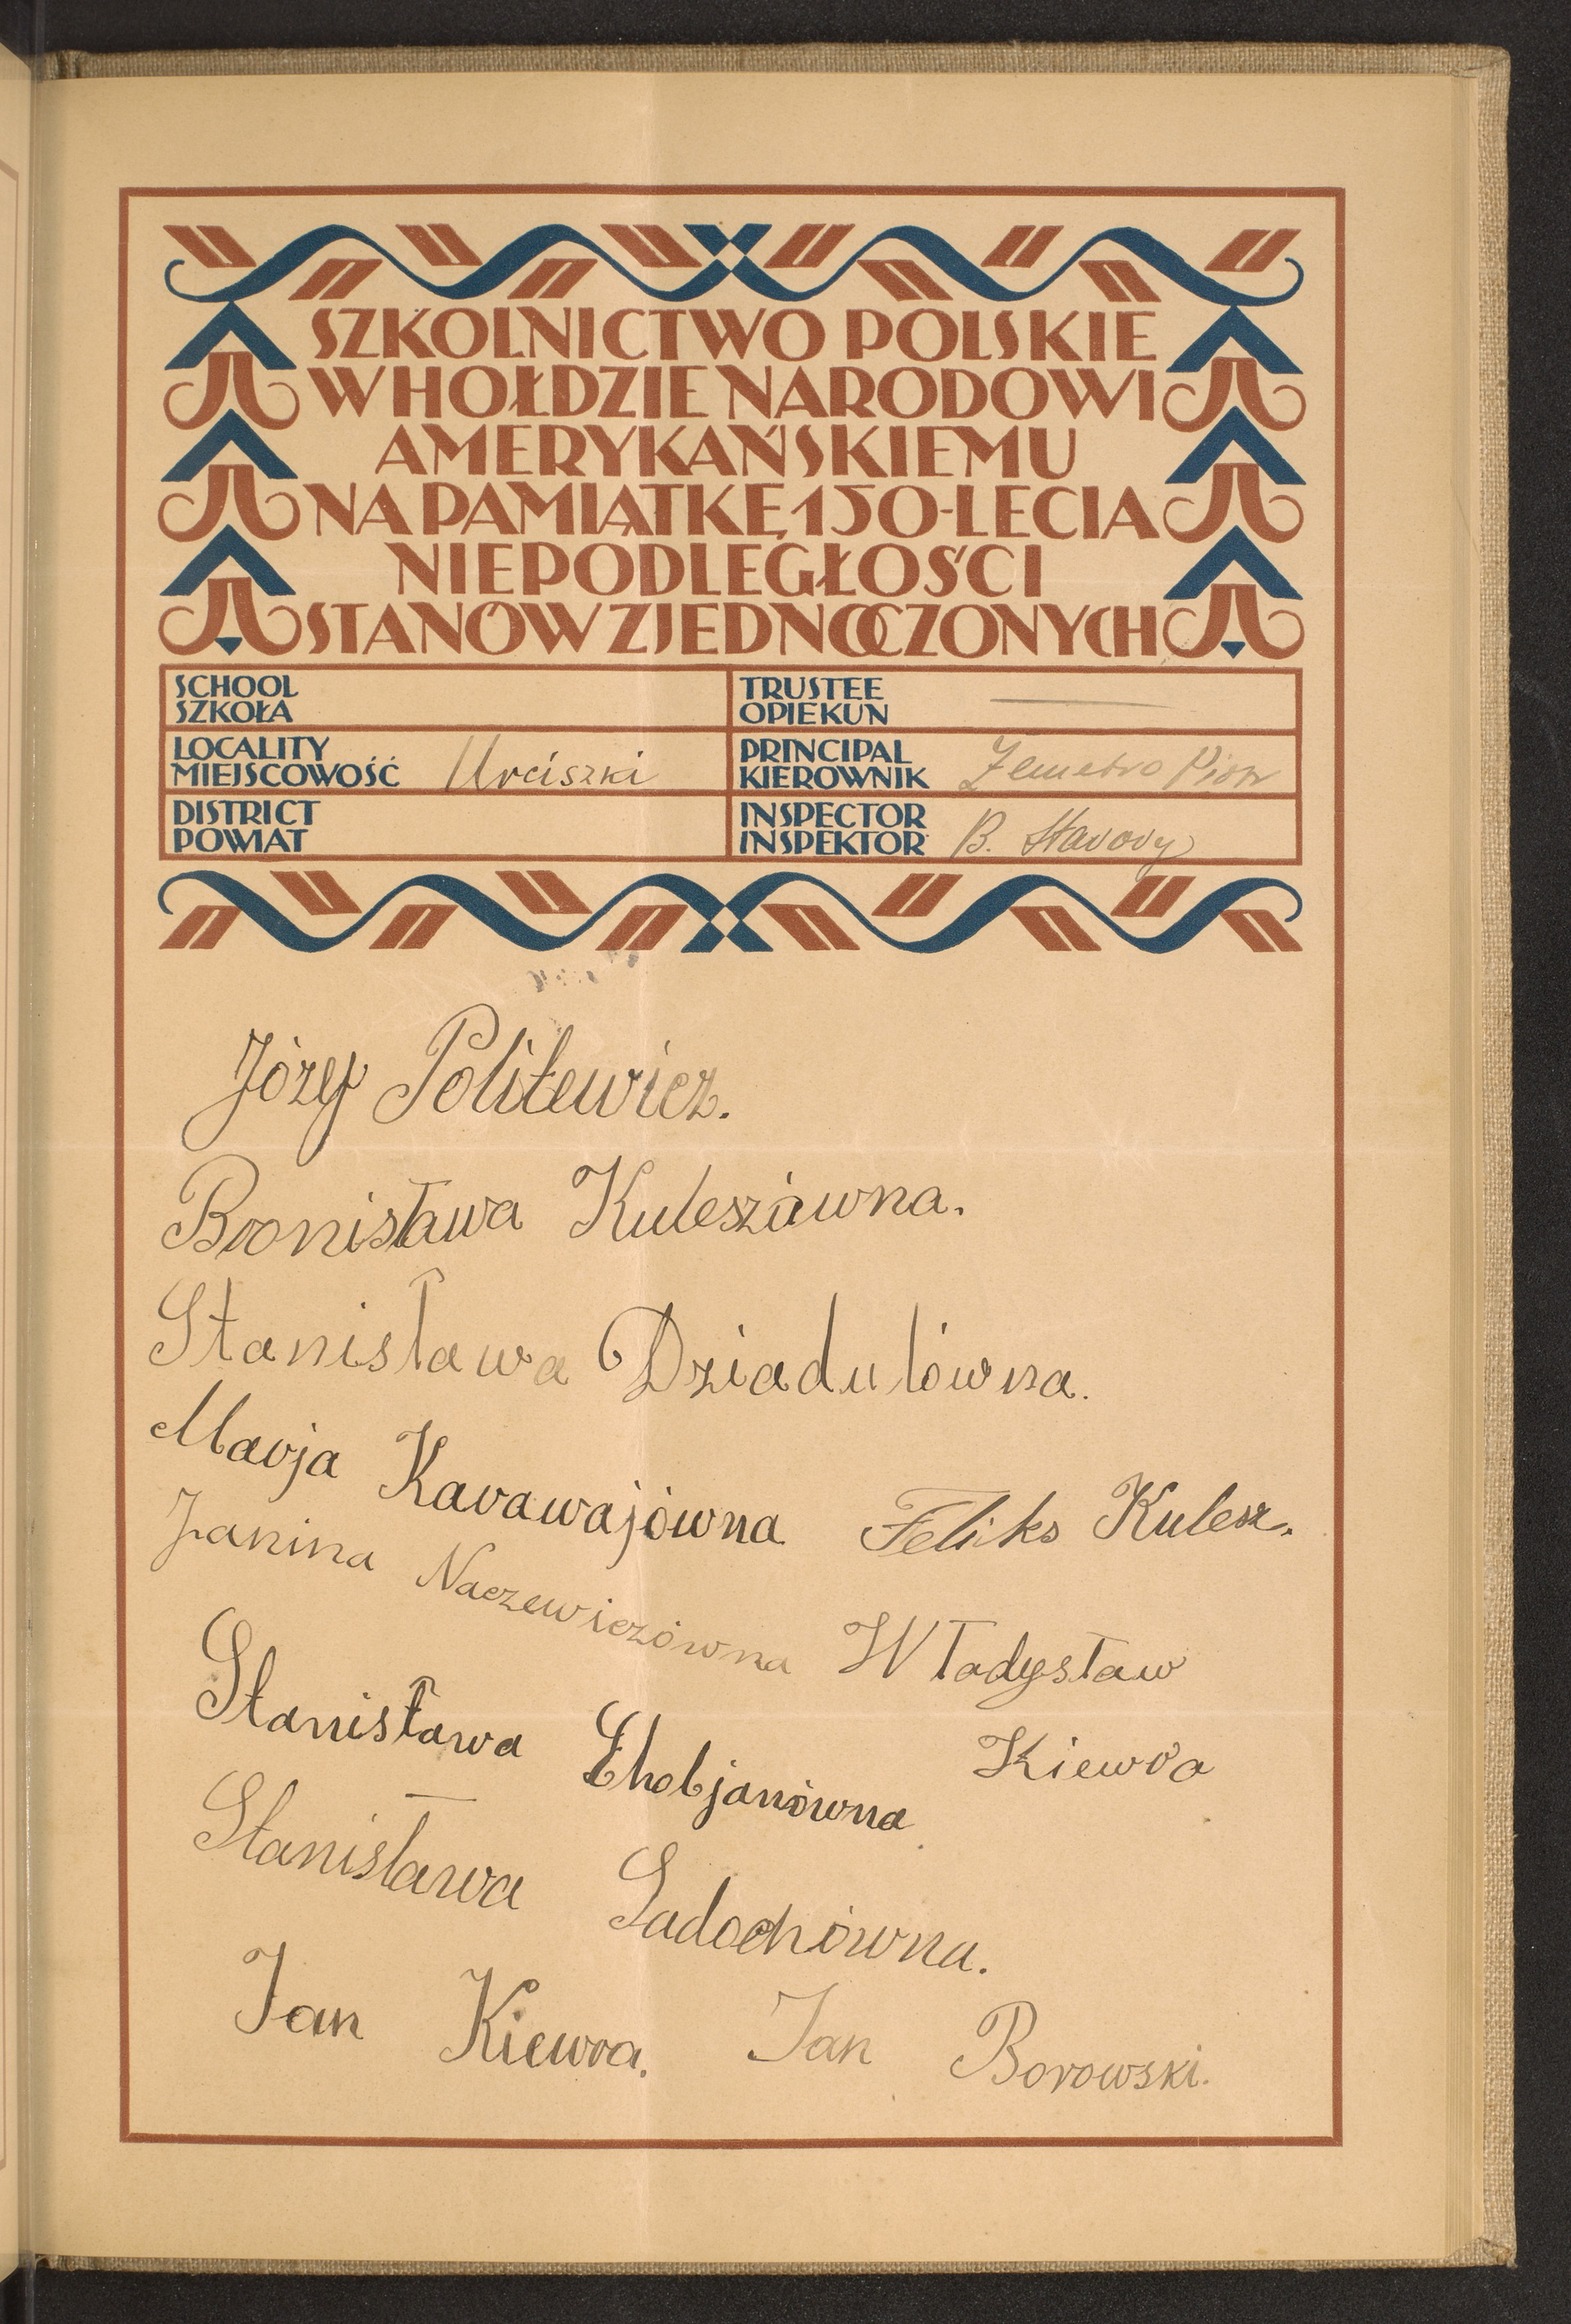 SZKOLNICTWO POLSKIE
W HOŁDZIE NARODOWI
AMERYKAŃSKIEMU
NA PAMIĄTKĘ 150-LECIA
NIEPODLEGŁOŚCI
STANÓW ZJEDNOCZONYCH
SCHOOL
SZKOŁA
TRUSTEE
OPIEKUN
LOCALITY
MIEJSCOWOŚĆ Urciszki
PRINCIPAL
KIEROWNIK Piotr
DISTRICT
POWIAT
INSPECTOR
INSPEKTOR B.
Józef Politewicz.
Bronisława Kuleszówna.
Stanisława Dziadulówna.
Marja Karawajówna Feliks Kulesz.
Janina Naczewiczówna Władysław
Kiewra
Stanisława Chobjanówna
Stanisława Ladochówna.
Jan Kiewra. Jan Borowski.